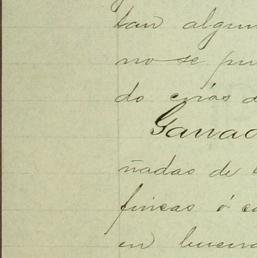 tan algun
no se pu
do crias d
Ganad
ñadas de
fincas ó c
en buena